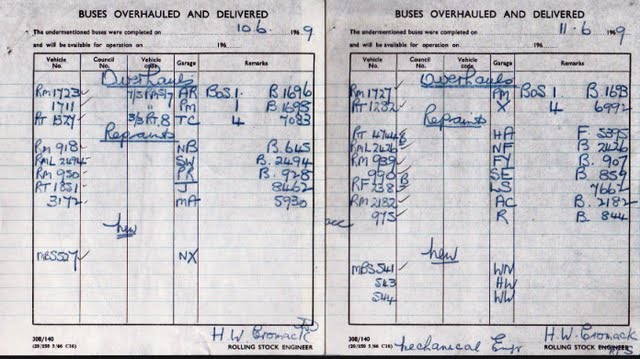 BUSES OVERHAULED AND DELIVERED
The undermentioned buses were completed on 10.6. 1969
and will be available for operation on 196
Vehicle No. Council No. Vehicle code. Garage Remarks
Overhauls
RM 1723 7/5 RM 97 AR BOS 1 B. 1696
1711 " PM 1 B 1695
RT 1527 3/3 RT 8 TC 4 7083
Repaints
RM 918 NB B. 645
RML 2494 SW B. 2494
RM 950 PR B. 928
RT 1851 J 8462
3172 MA 5930
New
MBS 527 NX
H.W. Cromack
308/140
ROLLING STOCK ENGINEER
BUSES OVERHAULED AND DELIVERED
The undermentioned buses were completed on 11.6 1969
and will be available for operation on 196
Vehicle No. Council No. Vehicle code. Garage Remarks
Overhauls
RM 1727 PM BOS 1. B. 1693
RT 1282 X 4 6992
Repaints
RT 4744 HA F. 5395
RML 2426 NF B 2426
RM 939 FY B. 907
990 SE B 859
RF 238 LS 7667
RM 2182 AC B. 2182
975 R B 844
New
MBS 541 WN
543 HW
544 WW
308/140
Mechanical Engr
H.W. Cromack
ROLLING STOCK ENGINEER